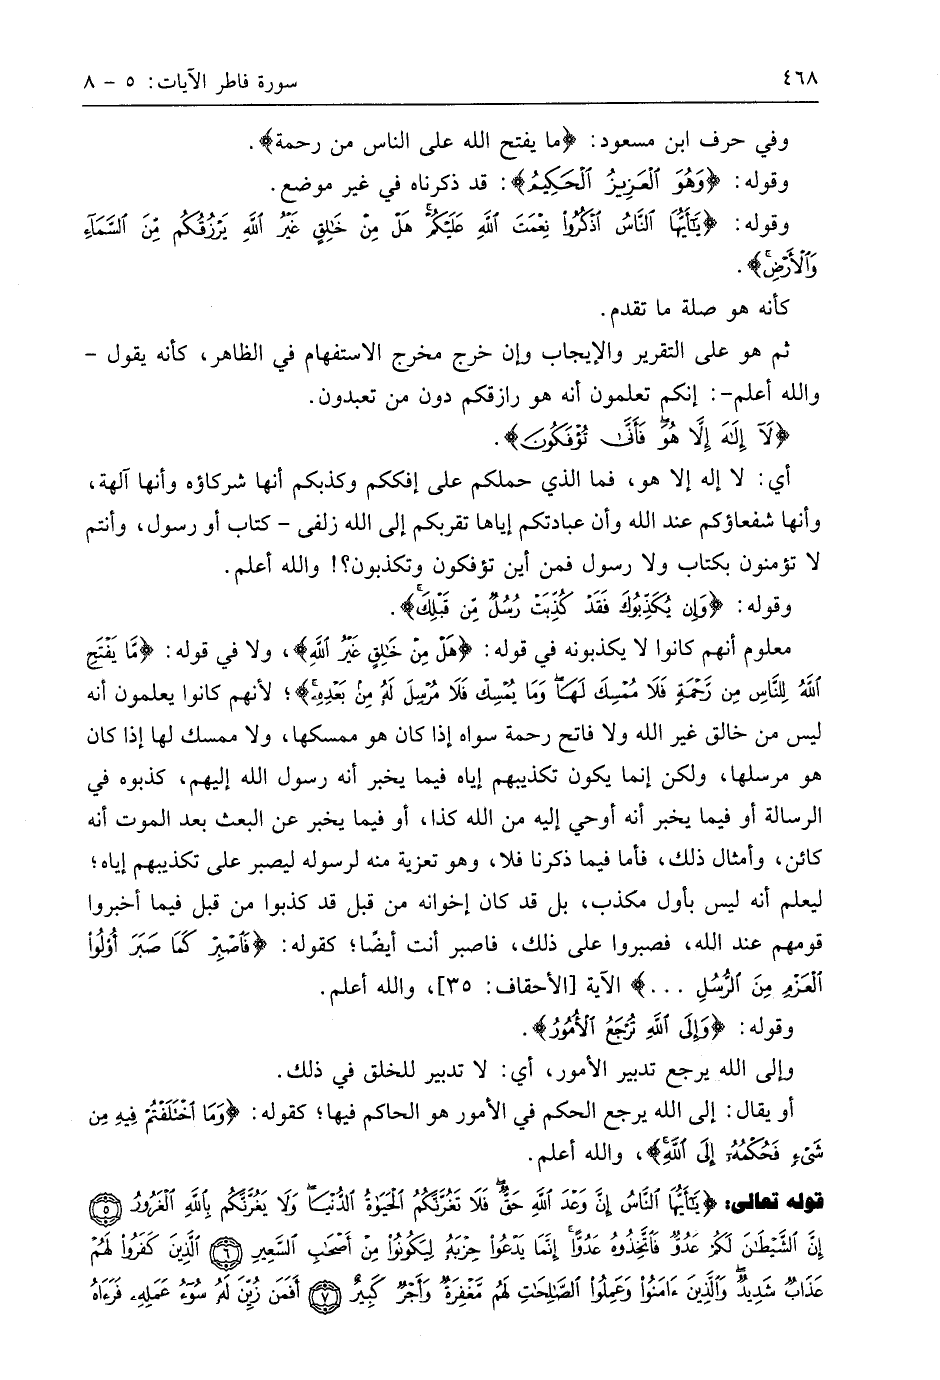 ٤٦٨ سورة فاطر الآيات: ٥ - ٨
وفي حرف ابن مسعود: ﴿ما يفتح الله على الناس من رحمة﴾.
وقوله: ﴿وَهُوَ ٱلْعَزِيزُ ٱلْحَكِيمُ﴾: قد ذكرناه في غير موضع.
وقوله: ﴿يَٰٓأَيُّهَا ٱلنَّاسُ ٱذْكُرُوا۟ نِعْمَتَ ٱللَّهِ عَلَيْكُمْ ۚ هَلْ مِنْ خَٰلِقٍ غَيْرُ ٱللَّهِ يَرْزُقُكُم مِّنَ ٱلسَّمَآءِ
وَٱلْأَرْضِ ۚ﴾.
كأنه هو صلة ما تقدم.
ثم هو على التقرير والإيجاب وإن خرج مخرج الاستفهام في الظاهر، كأنه يقول -
والله أعلم-: إنكم تعلمون أنه هو رازقكم دون من تعبدون.
﴿لَآ إِلَٰهَ إِلَّا هُوَ ۖ فَأَنَّىٰ تُؤْفَكُونَ﴾.
أي: لا إله إلا هو، فما الذي حملكم على إفككم وكذبكم أنها شركاؤه وأنها آلهة،
وأنها شفعاؤكم عند الله وأن عبادتكم إياها تقربكم إلى الله زلفى - كتاب أو رسول، وأنتم
لا تؤمنون بكتاب ولا رسول فمن أين تؤفكون وتكذبون؟! والله أعلم.
وقوله: ﴿وَإِن يُكَذِّبُوكَ فَقَدْ كُذِّبَتْ رُسُلٌ مِّن قَبْلِكَ ۚ﴾.
معلوم أنهم كانوا لا يكذبونه في قوله: ﴿هَلْ مِنْ خَٰلِقٍ غَيْرُ ٱللَّهِ﴾، ولا في قوله: ﴿مَّا يَفْتَحِ
ٱللَّهُ لِلنَّاسِ مِن رَّحْمَةٍ فَلَا مُمْسِكَ لَهَا ۖ وَمَا يُمْسِكْ فَلَا مُرْسِلَ لَهُۥ مِنۢ بَعْدِهِۦ ۚ﴾؛ لأنهم كانوا يعلمون أنه
ليس من خالق غير الله ولا فاتح رحمة سواه إذا كان هو ممسكها، ولا ممسك لها إذا كان
هو مرسلها، ولكن إنما يكون تكذيبهم إياه فيما يخبر أنه رسول الله إليهم، كذبوه في
الرسالة أو فيما يخبر أنه أوحي إليه من الله كذا، أو فيما يخبر عن البعث بعد الموت أنه
كائن، وأمثال ذلك، فأما فيما ذكرنا فلا، وهو تعزية منه لرسوله ليصبر على تكذيبهم إياه؛
ليعلم أنه ليس بأول مكذب، بل قد كان إخوانه من قبل قد كذبوا من قبل فيما أخبروا
قومهم عند الله، فصبروا على ذلك، فاصبر أنت أيضًا؛ كقوله: ﴿فَٱصْبِرْ كَمَا صَبَرَ أُو۟لُوا۟
ٱلْعَزْمِ مِنَ ٱلرُّسُلِ ...﴾ الآية [الأحقاف: ٣٥]، والله أعلم.
وقوله: ﴿وَإِلَى ٱللَّهِ تُرْجَعُ ٱلْأُمُورُ﴾.
وإلى الله يرجع تدبير الأمور، أي: لا تدبير للخلق في ذلك.
أو يقال: إلى الله يرجع الحكم في الأمور هو الحاكم فيها؛ كقوله: ﴿وَمَا ٱخْتَلَفْتُمْ فِيهِ مِن
شَىْءٍ فَحُكْمُهُۥٓ إِلَى ٱللَّهِ ۚ﴾، والله أعلم.
قوله تعالى: ﴿يَٰٓأَيُّهَا ٱلنَّاسُ إِنَّ وَعْدَ ٱللَّهِ حَقٌّ ۖ فَلَا تَغُرَّنَّكُمُ ٱلْحَيَوٰةُ ٱلدُّنْيَا ۖ وَلَا يَغُرَّنَّكُم بِٱللَّهِ ٱلْغَرُورُ ۝٥
إِنَّ ٱلشَّيْطَٰنَ لَكُمْ عَدُوٌّ فَٱتَّخِذُوهُ عَدُوًّا ۚ إِنَّمَا يَدْعُوا۟ حِزْبَهُۥ لِيَكُونُوا۟ مِنْ أَصْحَٰبِ ٱلسَّعِيرِ ۝٦ ٱلَّذِينَ كَفَرُوا۟ لَهُمْ
عَذَابٌ شَدِيدٌ ۖ وَٱلَّذِينَ ءَامَنُوا۟ وَعَمِلُوا۟ ٱلصَّٰلِحَٰتِ لَهُم مَّغْفِرَةٌ وَأَجْرٌ كَبِيرٌ ۝٧ أَفَمَن زُيِّنَ لَهُۥ سُوٓءُ عَمَلِهِۦ فَرَءَاهُ